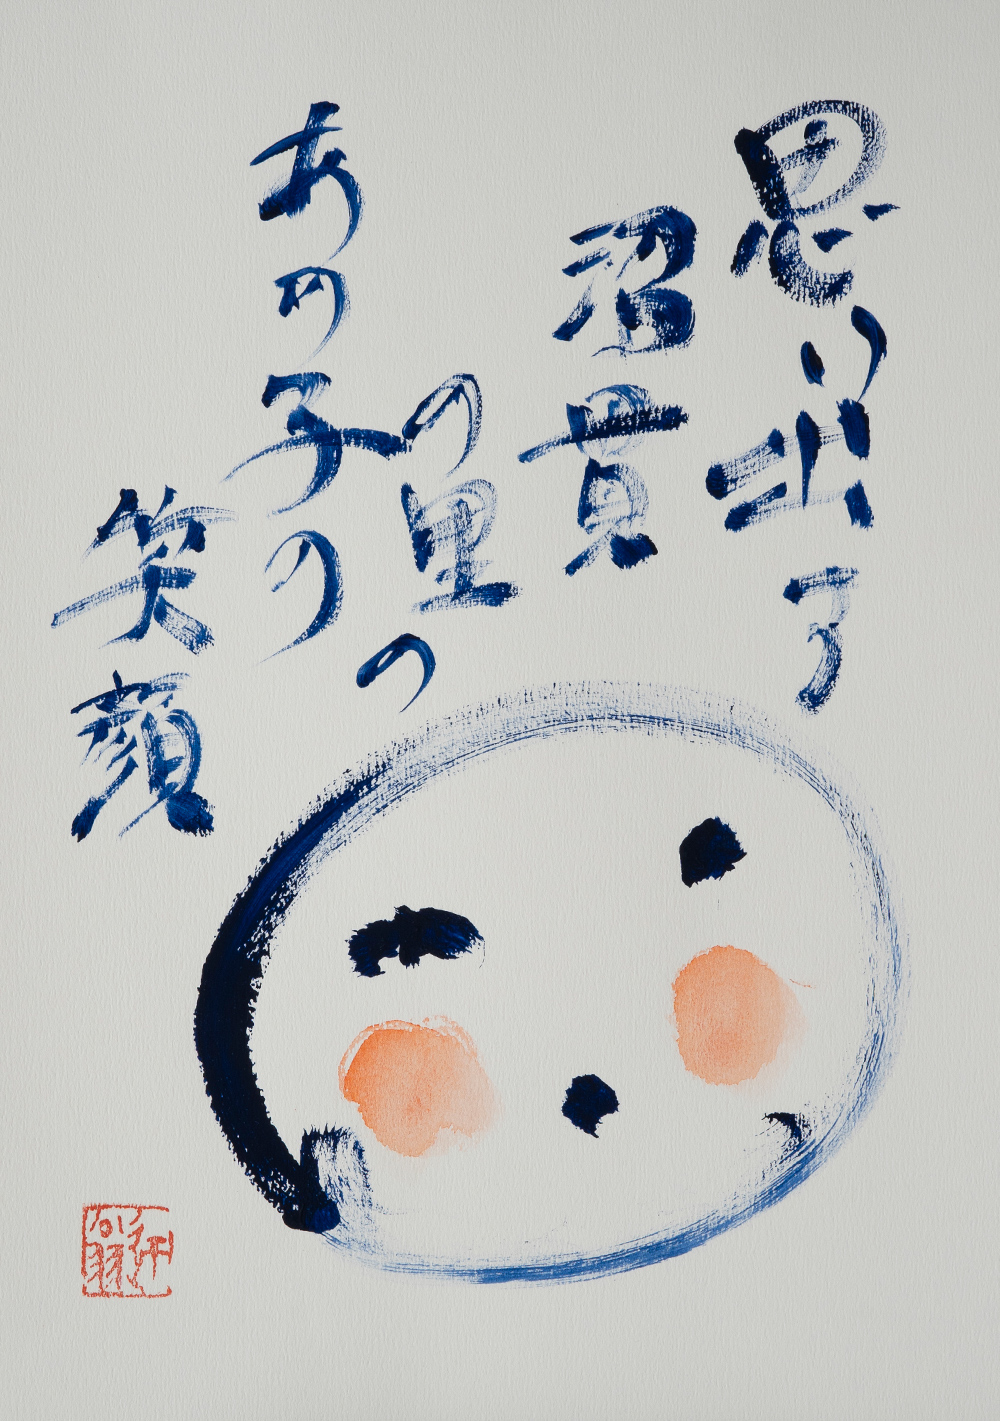 思い出す
沼貫
の里の
あの子の
笑顔